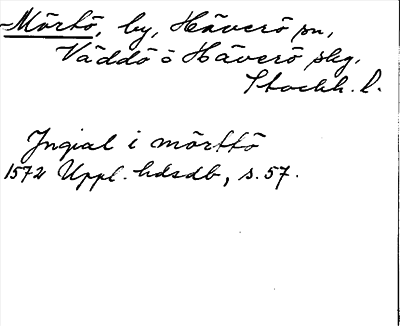 Mörtö, by, Häverö sn,
Väddö o Häverö skg.
Stockh. l.
Ingial i mörttö
1572 Uppl. hdsdb, s. 57.